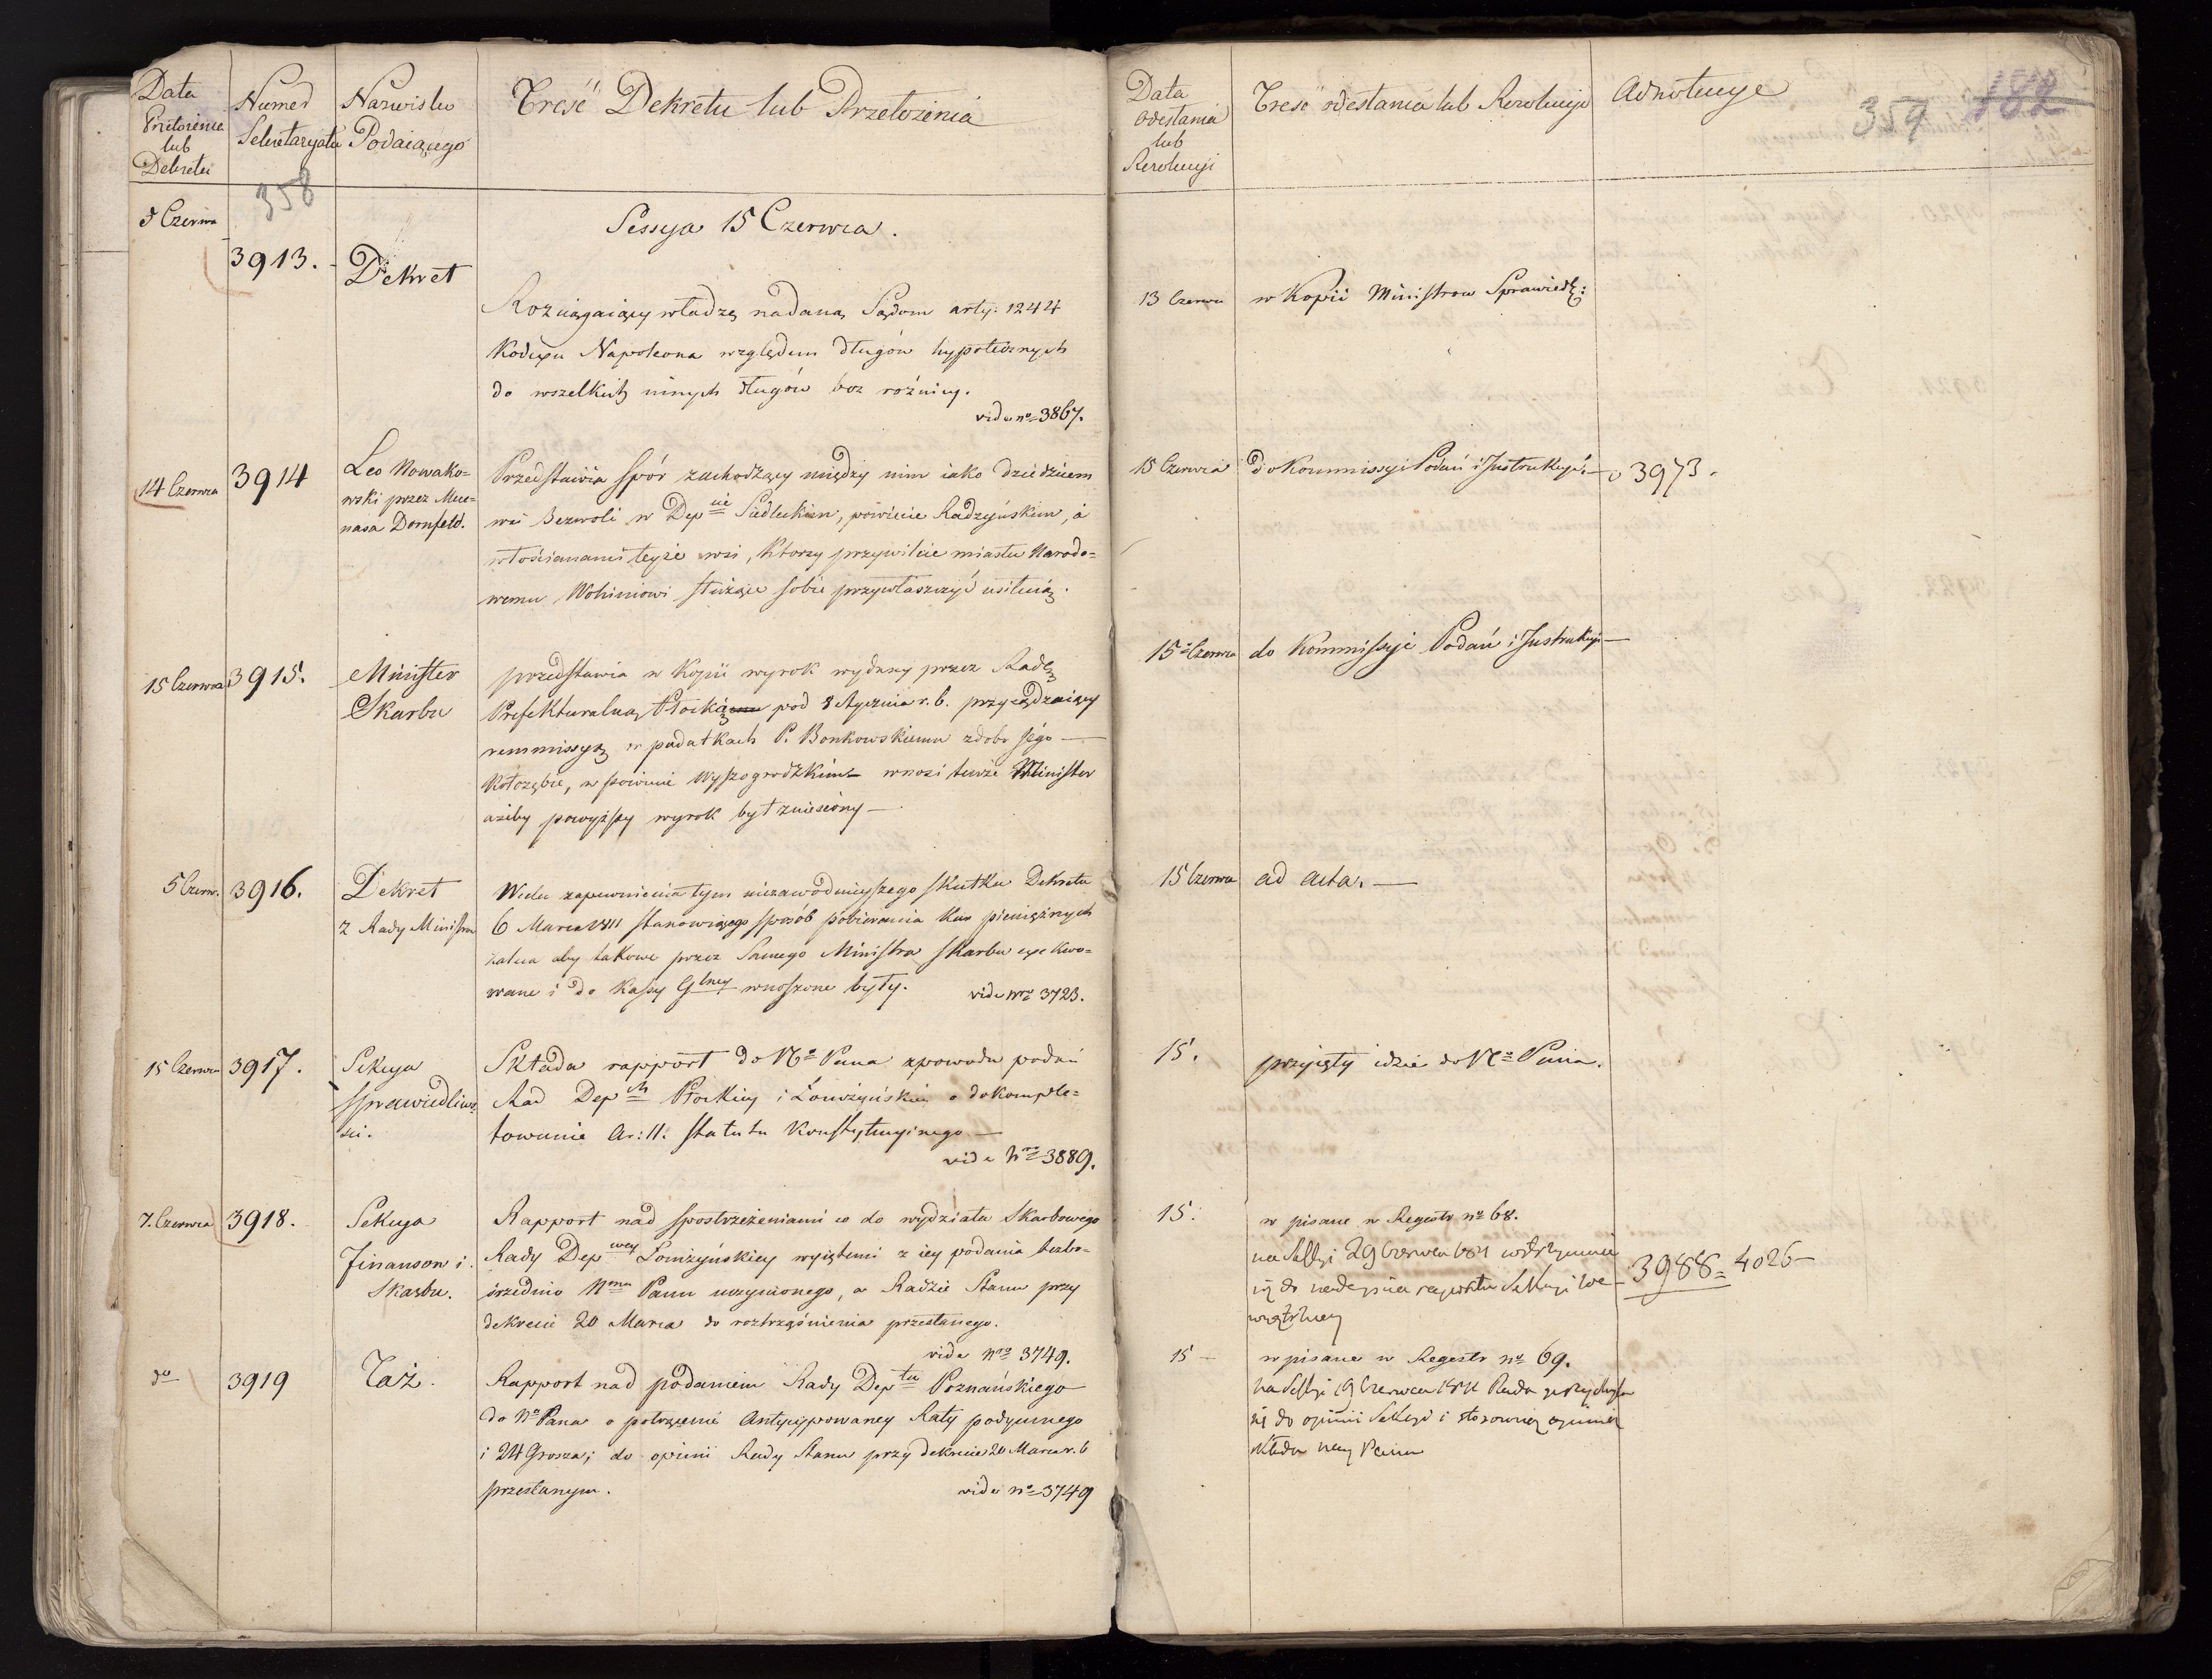 Data
Przełożenia
lub
Dekretu
Numer
Sekretaryatu
Nazwisko
Podaiącego
Treść Dekretu lub Przełożenia
358
Sessya 15 Czerwca.
5 Czerwca
3913.
Dekret
Rozciągaiący władzę nadaną Sądom arty: 1244
Kodexu Napoleona względem długów hypotecznych
do wszelkich innych długów bez rożnicy.
vide no 3867.
14 Czerwca
3914
Leo Nowako=
wski przez Mece=
nasa Dornfeld.
Przedstawia spór zachodzący między nim iako dziedzicem
wsi Bezwoli w Dep Siedleckim, powiecie Radzyńskim, a
włościanami teyże wsi, którzy przywileie miastu Narodo=
wemu Wohiniowi służące sobie przywłaszczyć usiłuią.
15 Czerwca
3915.
Minister
Skarbu
przedstawia w Kopii wyrok wydany przez Radę
Prefekturalną Płocką pod 8 Stycznia r. b. przysądzaiący
remmissyą w podatkach P. Bonkowskiemu z dobr jego
Kołozębie, w powiecie Wyszogrodzkim wnosi tenże Minister
ażeby powyższy wyrok był zniesiony
5 Czerw.
3916.
Dekret
z Rady Ministrów
W celu zapewnienia tym niezawodnieyszego skutku Dekretu
6 Marca 1811 stanowiącego sposób pobierania kar pieniężnych
zaleca aby takowe przez Samego Ministra Skarbu exekwo=
wane i do Kassy Glney wnoszone były.
vide Nro 3723.
15 Czerwca
3917.
Sekcya
Sprawiedliwo
ści.
Składa rapport do No Pana z powodu podań
Rad Dep Płockiey i Łomżyńskiey o dokomple=
towanie Ar: 11. Statutu Konstytucyinego
vide Nro 3889.
7. Czerwca
3918.
Sekcya
Finansow i
Skarbu.
Rapport nad spostrzeżeniami co do wydziału Skarbowego
Rady Depwey Łomżyńskiey wyiętemi z iey podania bezbo=
średnio Nmu Panu uczynionego, a Radzie Stanu przy
dekrecie 20 Marca do roztrząśnienia przesłanego.
vide Nro 3749.
do
3919
Taż.
Rapport nad podaniem Rady Deptu Poznańskiego
do No Pana o potrącenie Antycyppowaney Raty podymnego
i 24 Grosza; do opinii Rady Stanu przy dekrecie 20 Marca r. b
przesłanym.
vide No 3749
Data
Odesłania
lub
Rezolucyi
Treść odesłania lub Rezolucyi
Adnotacye
359
182
13 Czerwca
w Kopii Ministrowi Sprawiedl:
15 Czerwca
do Kommissyi Podań i Instrukcyi.
3973.
15 Czerwca
do Kommissyi Podań i Instrukcyi
15 Czerwca
ad acta.
15.
przyięty idzie do No Pana.
15.
wpisane w Regestr no 68.
na Sessyi 29 Czerwca 1811 wstrzymanie
się do nadeyścia rapportu Sekcyi we
wnętrzney
3988 = 4026
15
wpisane w Regestr no 69.
na Sessyi 19 Czerwca 1811 Rada przychyla
się do opinii Sekcyi i stosownie opinię
składa Ney Panu